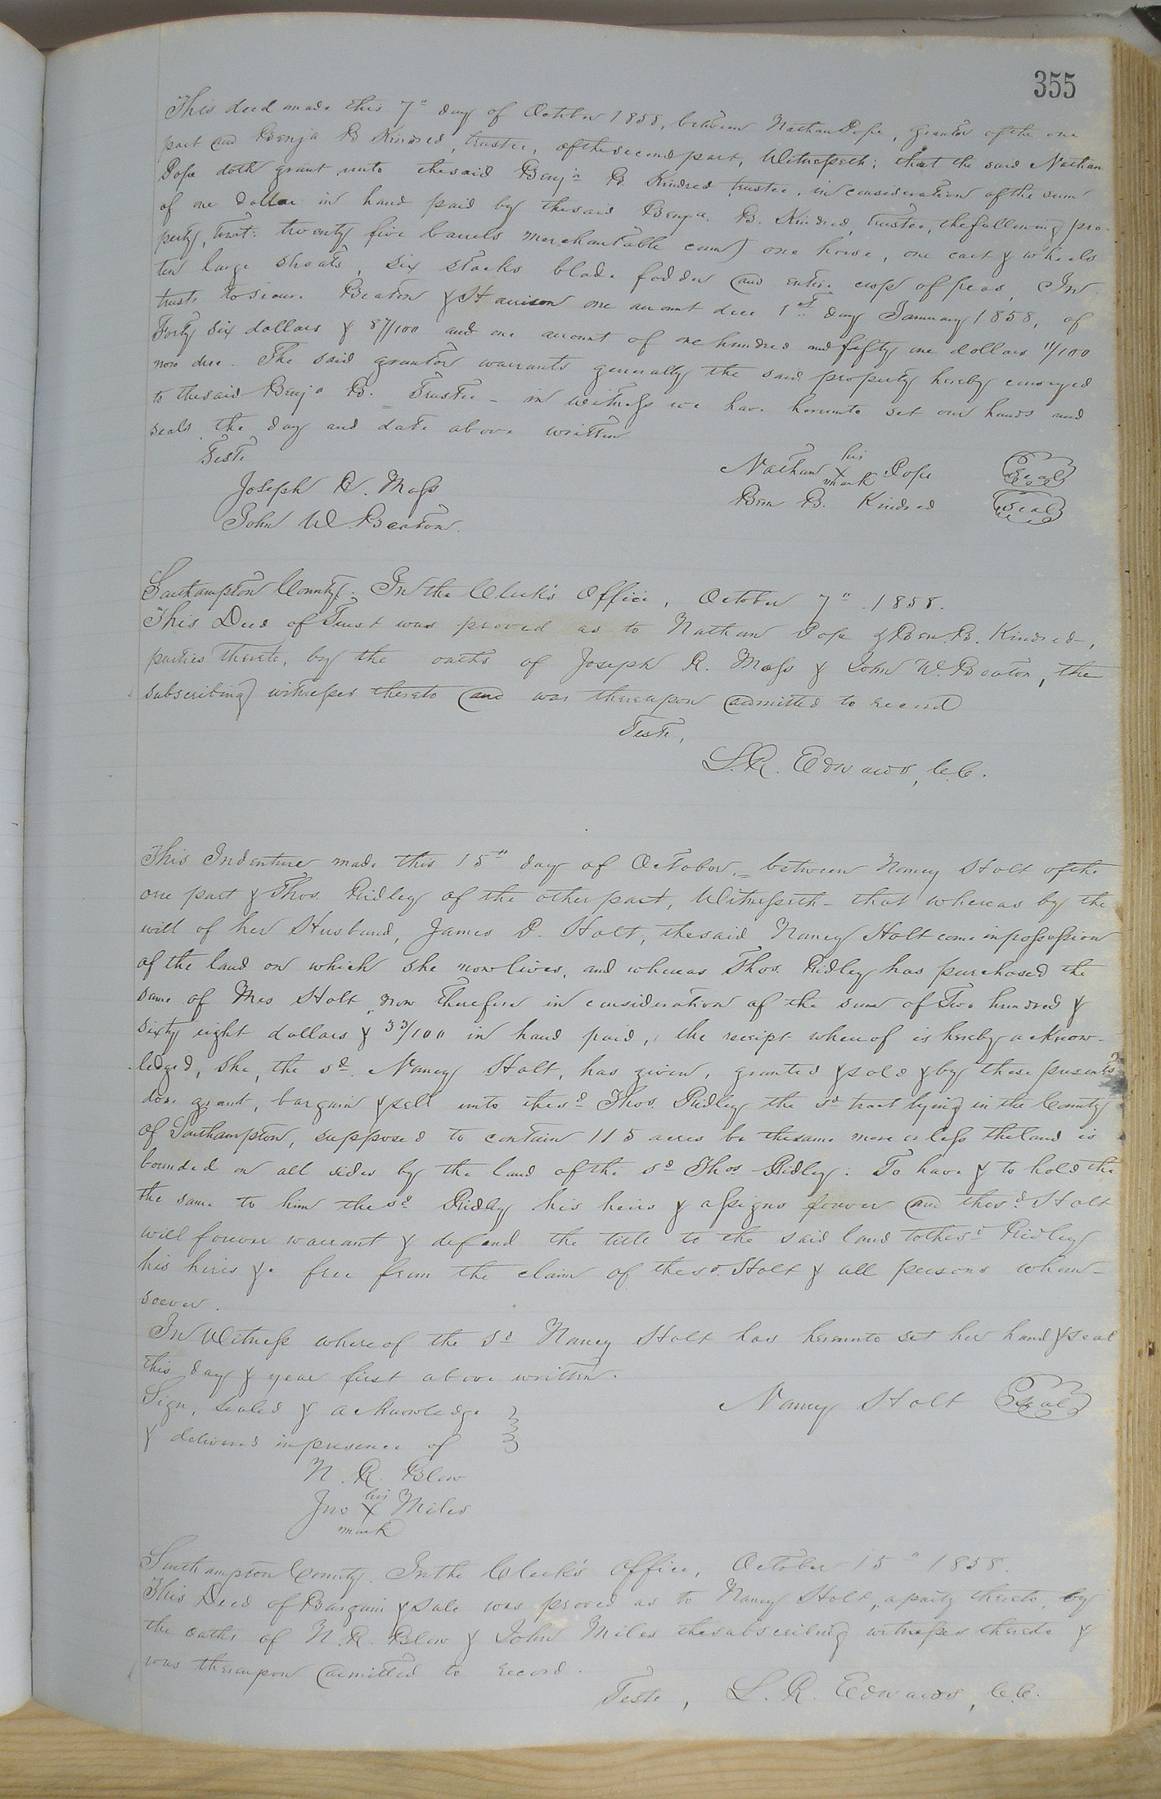 355
This deed made this 7" day of October 1858, between Nathan Pope, grantor of the one
part and Benja B Kindred, trustee, of the second part, Witnesseth; that the said Nathan
Pope doth grant unto the said Benja B. Kindred trustee, in consideration of the sum
of one dollar in hand paid by the said Benja. B. Kindred, trustee, the following pro-
perty, towit: twenty five barrels merchantable corn, one horse, one cart & wheels
ten large shoats, six stacks blade fodder and entire crop of peas, In
trust to secure Beaton & Harrison one amount due 1st day January 1858, of
Forty six dollars & 87/100 and one amount of one hundred and fifty one dollars 11/100
now due. The said grantor warrants generally the said property hereby conveyed
to the said Benja B. Trustee - in witness we have hereunto set our hands and
seals the day and date above written
Teste
Joseph R. Moss
John W Beaton.
Nathan his X mark Pope Seal
Ben B. Kindred Seal
Southampton County. In the Clerk's Office, October 7" 1858.
This Deed of Trust was proved as to Nathan Pope & Ben. B. Kindred,
parties thereto, by the oaths of Joseph R. Moss & John W. Beaton, the
subscribing witnesses thereto and was thereupon admitted to record
Teste,
L. R. Edwards, C.C.
This Indenture made this 15" day of October, between Nancy Holt of the
one part & Thos. Ridley of the other part, Witnesseth - that whereas by the
will of her Husband, James D. Holt, the said Nancy Holt came in possession
of the land on which she now lives, and whereas Thos. Ridley has purchased the
same of Mrs Holt, now therefore in consideration of the sum of Two hundred &
sixty eight dollars & 33/100 in hand paid, the receipt whereof is hereby acknow-
ledged, she, the sd. Nancy Holt, has given, granted & sold & by these presents
does grant, bargain & sell unto the sd Thos. Ridley the sd tract lying in the County
of Southampton, supposed to contain 115 acres be the same more or less the land is
bounded on all sides by the land of the sd Thos Ridley. To have & to hold the
the same to him the sd Ridley his heirs & assigns forever and the sd Holt
will forever warrant & defend the title to the said land to the sd Ridley
his heirs &c free from the claim of the sd. Holt & all persons whom-
soever.
In Witness whereof the sd Nancy Holt has hereunto set her hand & seal
this day & year first above written.
Sign, sealed & acknowledge
& delivered in presence of
Nancy Holt Seal
N. R. Blow
Jno his X mark Miles
Southampton County. In the Clerk's Office, October 15" 1858.
This Deed of Bargain & Sale was proved as to Nancy Holt, a party thereto, by
the oaths of N. R. Blow & John Miles the subscribing witnesses thereto &
was thereupon admitted to record.
Teste, L. R. Edwards, C.C.